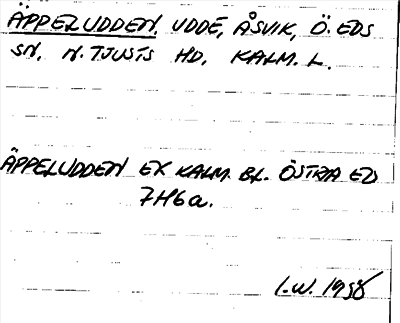 ÄPPELUDDEN, UDDE, ÅSVIK, Ö. EDS
SN, N. TJUSTS HD, KALM. L.
ÄPPELUDDEN EK KALM. BL. ÖSTRA ED
7H6a.
I.W. 1958